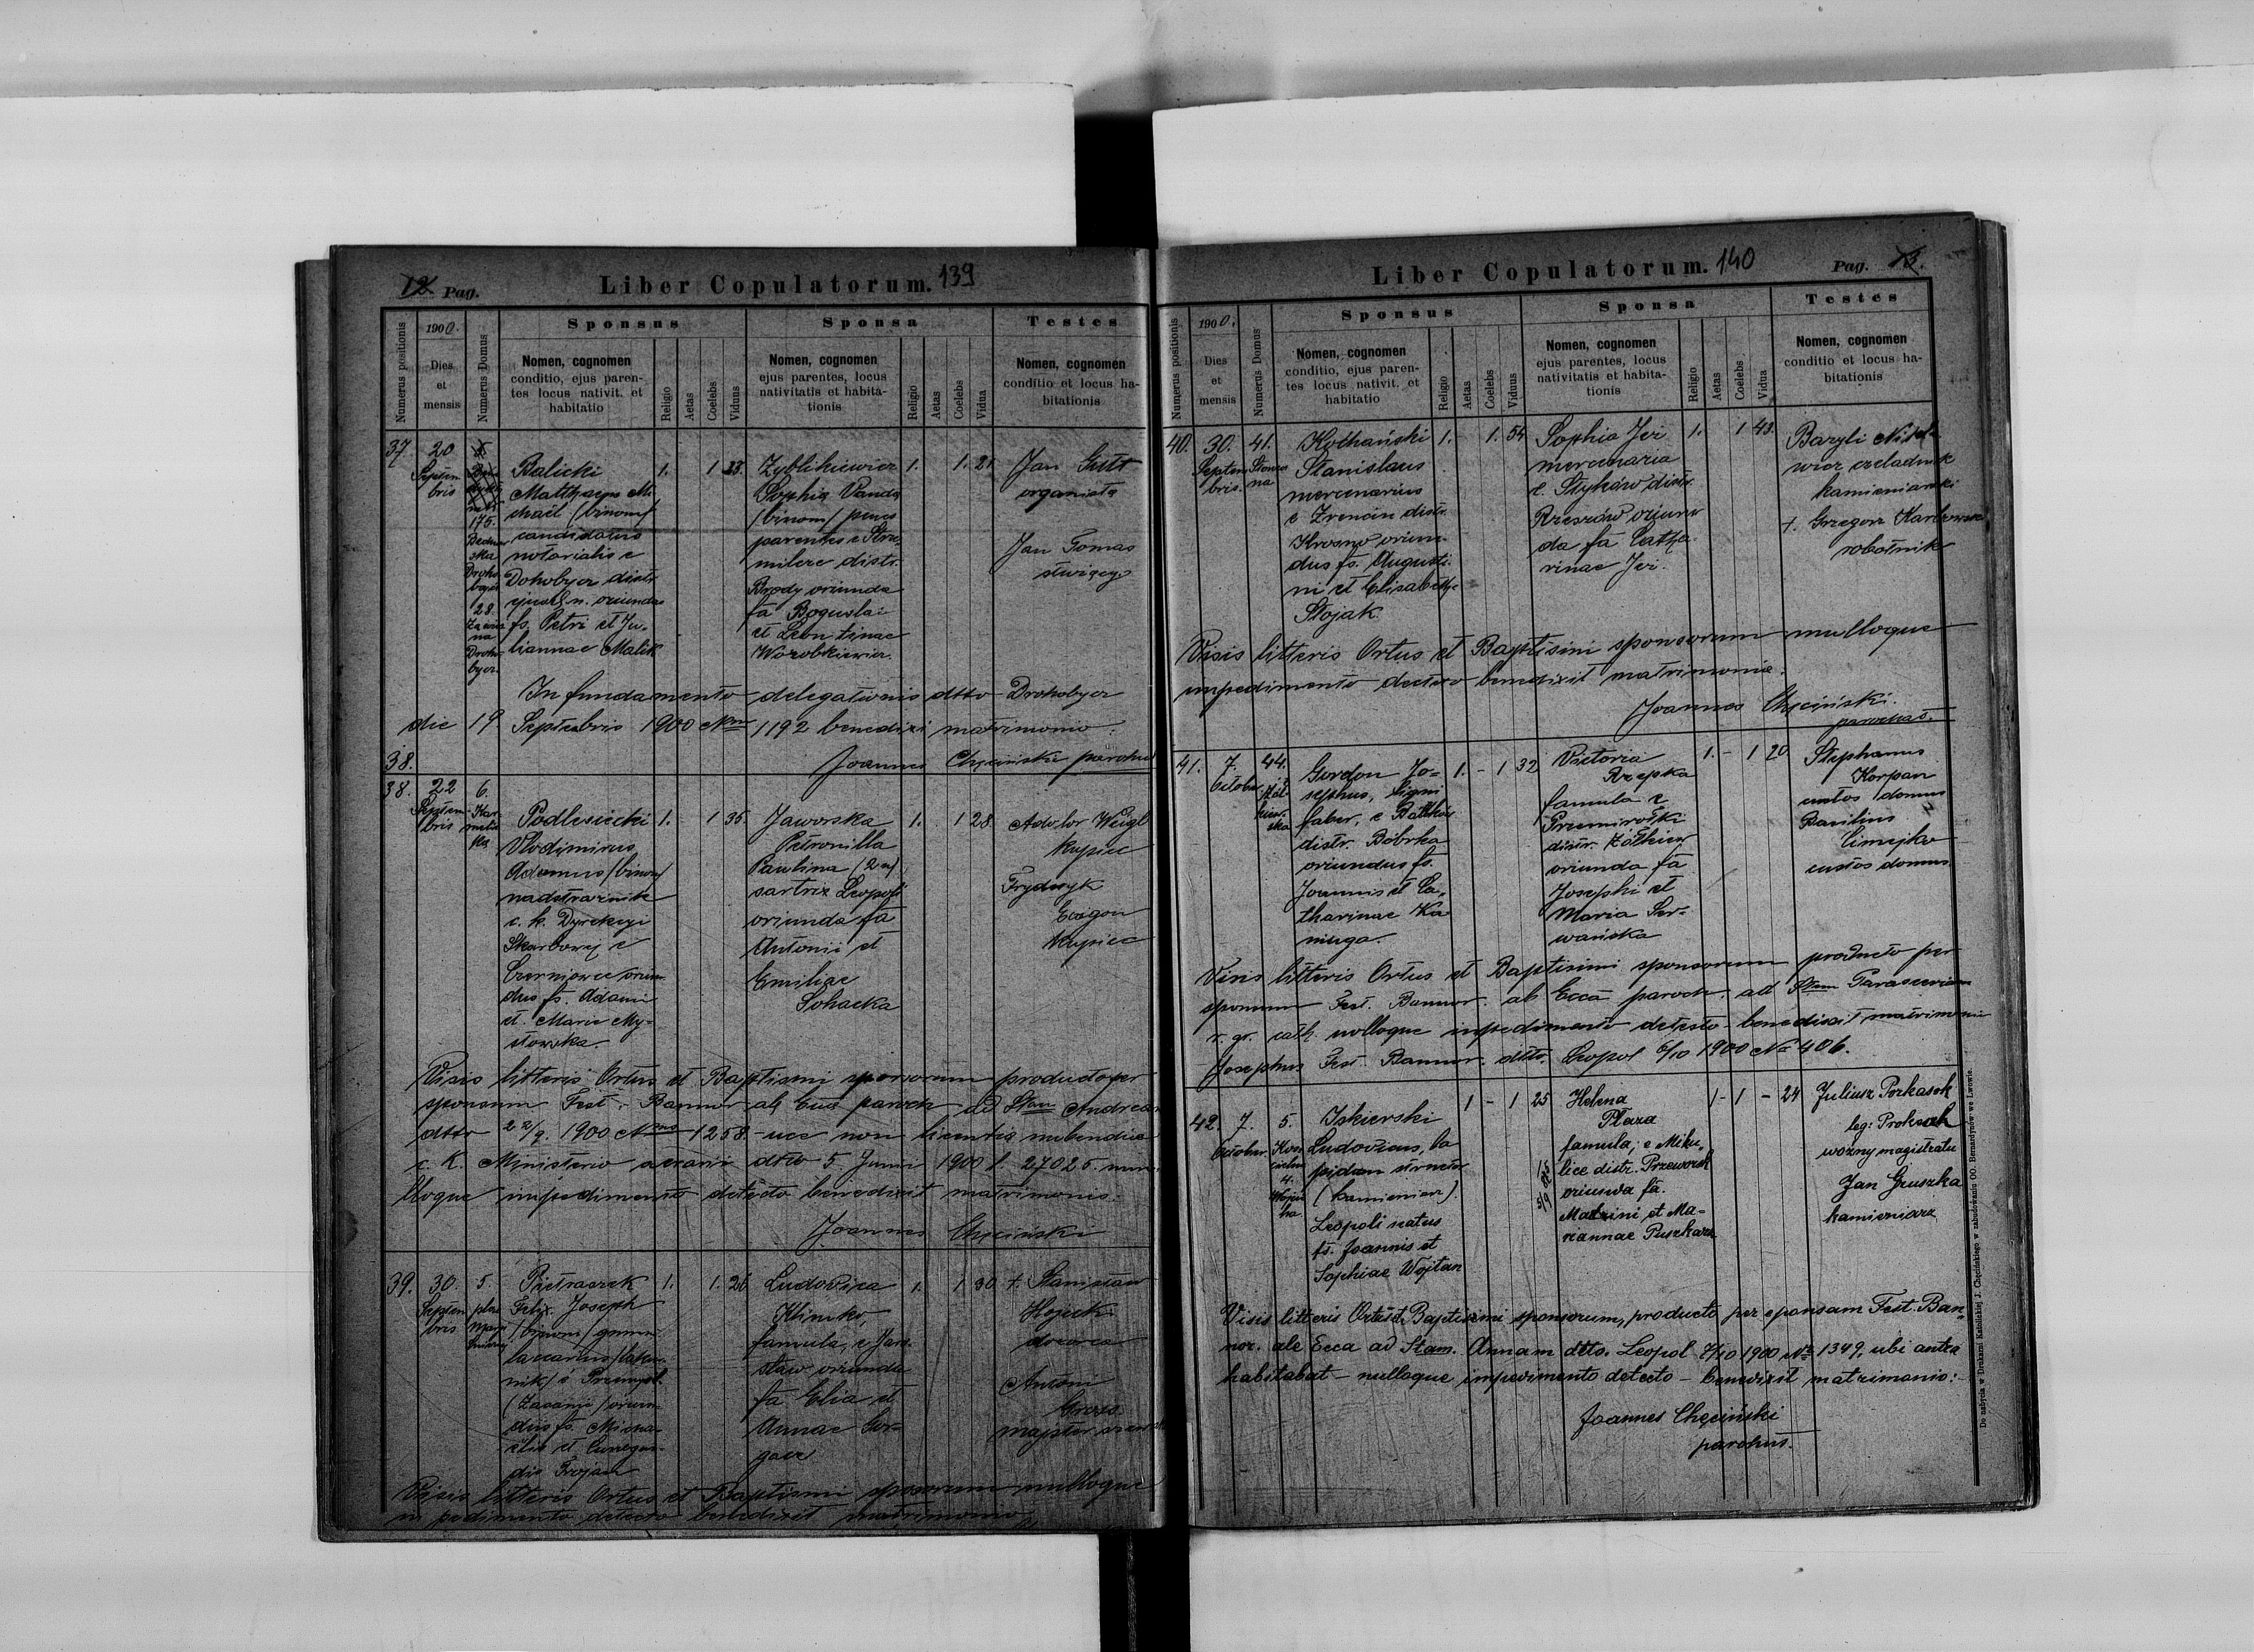 12 Pag.
Liber Copulatorum. 139
Numerus positionis
1900.
Dies
et
mensis
Numerus Domus
Sponsus
Nomen, cognomen
conditio, ejus paren-
tes locus nativit. et
habitatio
Religio
Aetas
Coelebs
Viduus
Sponsa
Nomen, cognomen
ejus parentes, locus
nativitatis et habita-
tionis
Religio
Aetas
Coelebs
Vidua
Testes
Nomen, cognomen
conditio et locus ha-
bitationis
37.
20
Septem
bris
175.
Droho
byer
28.
Droho
byer.
Balicki
Matthaeus Mi
chaël /binom/
candidatus
notarialis e
Dohobyer distr.
ejusd. n. oriundus
fs. Petri et Ju-
liannae Malik
1.
1 33.
Zyblikiewicz
Sophia Vanda
/binom/ penes
parentes e Stru
milcze distr.
Brody oriunda
fa Bogusla-
et Leontinae
Worobkiewicz.
1.
1. 21
Jan Gutt
organista
Jan Tomas
In fundamento delegationis dtto Drohobycz
die 19 Septebris 1900 Nro 1192 benedixi matrimonio:
Joannes Chęciński parohus
38.
38.
22
Septem
bris
6.
Kar
melic
ka
Podlesiecki
Vlodimirus
Adamus /binom/
nadstraznik
c. k. Dyrekcyi
Skarbowej e
Czerniowce oriun
dus fs. Adami
et Marie My-
stowska.
1.
1 35.
Jaworska
Petronilla
Paulina (2 n)
sartrix Leopoli
oriunda fa
Antonii et
Emiliae
Sohacka
1.
1 28.
Adolor Weigl
kupiec
Frydryk
Ewigon
kupiec
Visis litteris Ortus et Baptismi sponsorum producto per
sponsum Test. Bannor ab Ecca paroch ad Stam Andream
dtto 22/9. 1900 Nro 1258 nec non licentia nubendi a
c. K. Ministerio aerarii dtto 5 Junii 1900 l. 27025 nu
lloque impedimento detecto benedixit matrimonio.
Joannes Chęciński
39.
30.
Septem
bris
5.
plac
Maryi
Pietraszek
Felix Joseph
/binom/
nik/ e Przemyśl
(Zasanie) oriun
dus fs. Micha
ëlis et Cunegun
dis Trojan
1.
1. 26
Ludovica
Klimko,
famula, e Jaro
slaw oriunda
fa Elia et
Annae Gor-
gacz
1.
1 30
+ Stanisław
Hojecki
dozorca
Antoni
Gross
majster
Visis litteris Ortus et Baptismi sponsorum nulloque
impedimento detecto benedixit matrimonio
Liber Copulatorum. 140
Pag. 13.
Numerus positionis
1900.
Dies
et
mensis
Numerus Domus
Sponsus
Nomen, cognomen
conditio, ejus paren-
tes locus nativit. et
habitatio
Religio
Aetas
Coelebs
Viduus
Sponsa
Nomen, cognomen
ejus parentes, locus
nativitatis et habita-
tionis
Religio
Aetas
Coelebs
Vidua
Testes
Nomen, cognomen
conditio et locus ha-
bitationis
40.
30.
Septem
bris.
41.
Słonecz
na
Kołhański
Stanislaus
mercenarius
e Zrencin distr.
Krosno oriun-
dus fs. Augusti-
ni et Elisabethe
Stojak.
1.
1. 54
Sophia Jei
mercenaria
e Styków distr.
Rzeszów oriun
da fa Catha-
rinae Jei.
1.
1 43.
Bazyli
wicz czeladnik
kamieniarski
+ Grzegorz
robotnik
Visis litteris Ortus et Baptisini sponsorum nulloque
impedimento detecto benedixit matrimonio:
Joannes Chęciński.
parochus.
41.
7.
Octobr.
44.
Żół
kiew
ska
Gordon Jo-
sephus, ligni
faber, e
distr. Bóbrka
oriundus fs.
Joannis et Ca-
tharinae Ka
niuga.
1. - 1 32
Victoria
Rzepka
famula e
Przemiwółki
distr. Żółkiew
oriunda fa
Josephi et
Maria Ser-
wańska
1. - 1 20
Stephanus
Korpan
custos domus
Basilius
custos domus
Visis litteris Ortus et Baptisimi sponsorum producto per
sponsum Test. Bannor. ab Ecca paroch. ad Stam Parasceviam
r. gr. cath. nulloque impedimento detecto benedixit matrimonio
Josephus Test. Bannor. dtto. Leopol 6/10 1900 No 406.
42.
7.
Octobr.
5.
Kos
cielna
4.
Iskierski
Ludovicus, la
pidum structor
(kamieniarz).
Leopoli natus
fs. Joannis et
Sophiae Wojtan
1 - 1 25
Helena
Plaza
famula, e Miku,
lice distr. Przeworsk
oriunda fa.
Martini et Ma-
riannae Puszkarz
1 - 1 - 24
Juliusz Porkasek
leg: Prokasek
woźny magistratu
Jan Gruszka
kamieniarz
Visis litteris Ortus et Baptisimi sponsorum, producto per sponsam Test. Ban-
nor. ale Ecca ad Stam. Annam dtto. Leopol 7/10 1900 No 1349, ubi antea
habitabat – nulloque impedimento detecto – benedixit matrimonio:-
Joannes Chęciński
parohus.
Do nabycia w Drukarni Katolickiej J. Chęcińskiego w zabudowaniu OO. Bernardynów we Lwowie.